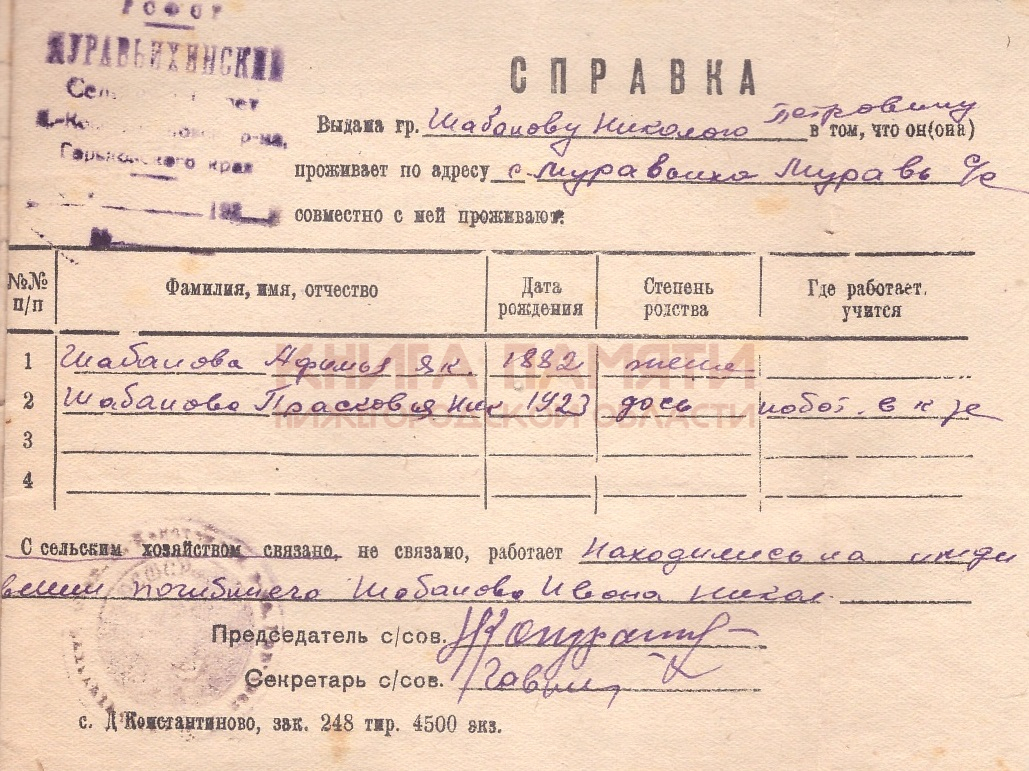 РСФСР
МУРАВЬИХИНСКИЙ
Горьковского края
СПРАВКА
Выдана гр. Шабанову Николаю Петровичу в том, что он(она)
проживает по адресу с. Муравьиха Муравь с/с
совместно с ней проживают:
№№ п/п Фамилия, имя, отчество Дата рождения Степень родства Где работает, учится
1 Шабанова Афимья Як. 1882 жена
2 Шабанова Прасковья Ник 1923 дочь работ. в к-зе
3
4
КНИГА ПАМЯТИ
НИЖЕГОРОДСКОЙ ОБЛАСТИ
С сельским хозяйством связано, не связано, работает Находились на ижди
вении погибшего Шабанова Ивана Никол.
Председатель с/сов.
Секретарь с/сов.
с. Д Константиново, зак. 248 тир. 4500 экз.